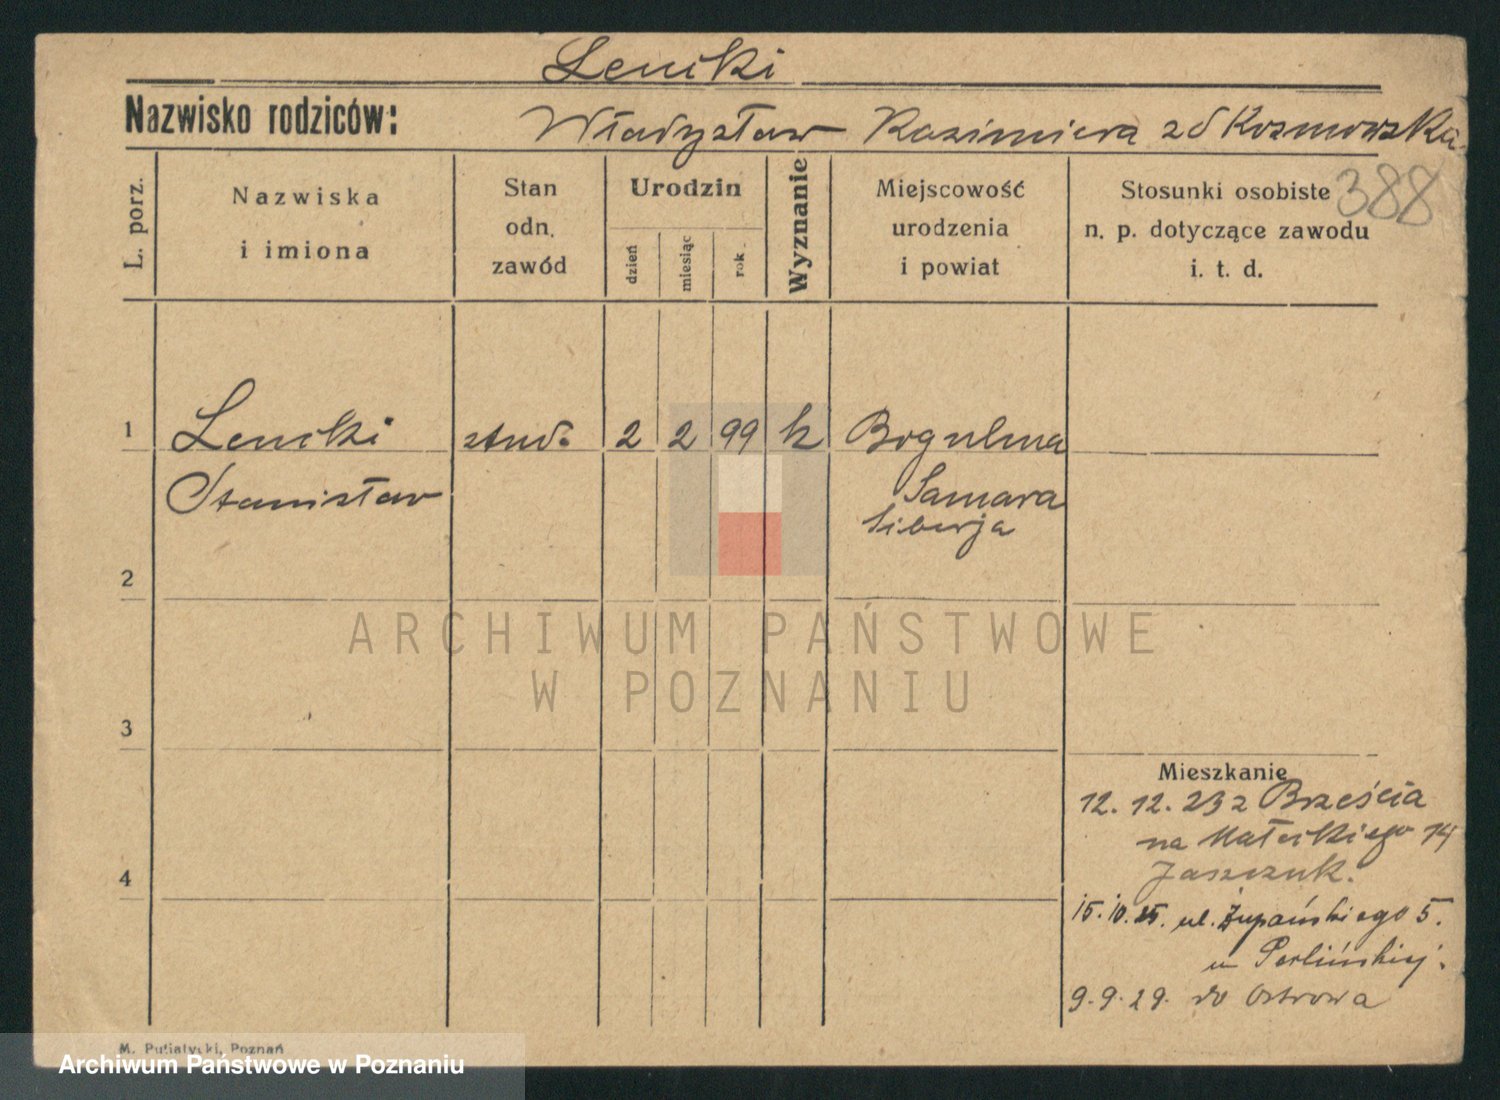 Lenicki
Nazwisko rodziców: Władysław Kazimiera zd Kozmowska
388
L. porz.
Nazwiska
i imiona
Stan
odn.
zawód
Urodzin
dzień
miesiąc
rok
Wyznanie
Miejscowość
urodzenia
i powiat
Stosunki osobiste
n. p. dotyczące zawodu
i. t. d.
1 Lenicki stud. 2 2 99 k
Stanisław Samara
Siberja
2
ARCHIWUM PAŃSTWOWE
W POZNANIU
3
Mieszkanie
12. 12. 23 z Brześcia
na Małeckiego 14
Jaszczuk.
4
15. 10. 25. ul. Żupańskiego 5.
u Perlińskiej.
9. 9. 29. do Ostrowa
M. Putiatycki, Poznań
Archiwum Państwowe w Poznaniu